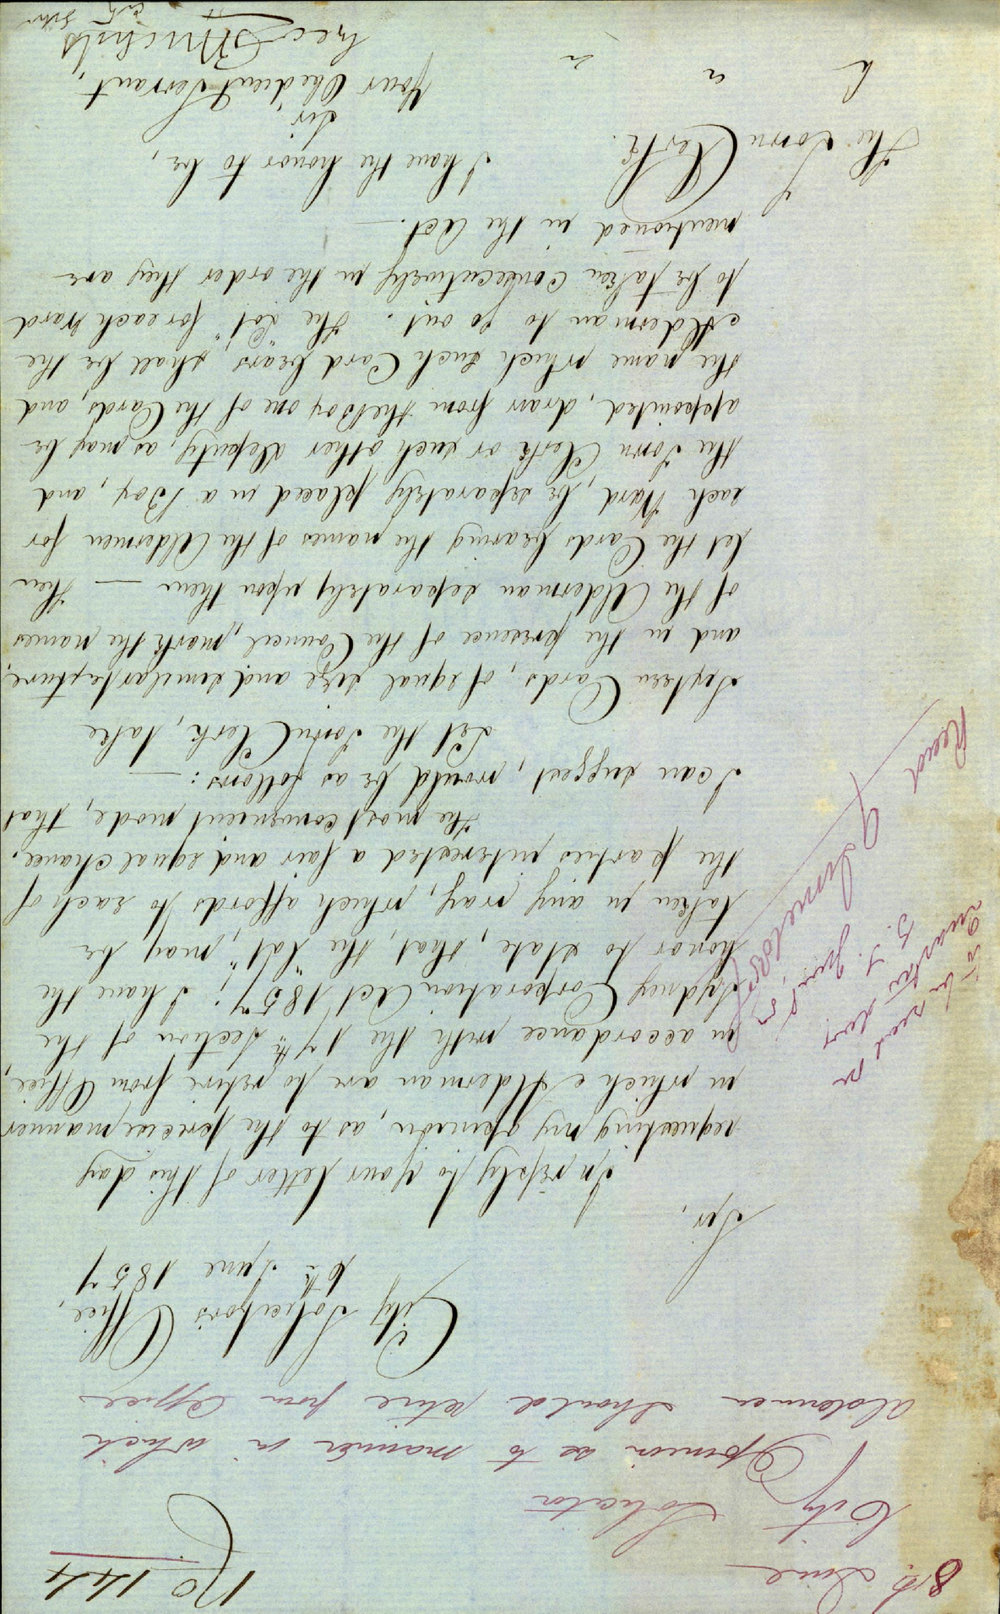 No 144
8th June
City Solicitor
Opinion as to manner in which
Aldermen should retire from Office
City Solicitor's Office,
6th June 1857
Sir,
In reply to your letter of this day
requesting my opinion, as to the precise manner
in which Alderman are to retire from Office,
in accordance with the 17th Section of the
"Sydney Corporation Act 1857"; I have the
honor to state, that, the "lot", may be
taken in any way, which affords to each of
the parties interested a fair and equal chance.
The most convenient mode, that
I can suggest, would be as follows: —
Let the Town Clerk, take
Sixteen Cards, of equal size and similar texture,
and in the presence of the Council, mark the names
of the Alderman separately upon them — then
let the Cards bearing the names of the Aldermen for
each Ward, be separately placed in a Box, and
the Town Clerk or such other deputy, as may be
appointed, draw from the Box one of the Cards, and
the name which such Card bears, shall be the
Alderman to go out. The "Lot" for each Ward
to be taken consecutively in the order they are
mentioned in the Act. —
I have the honor to be,
Sir
Your Obedient Servant,
The Town Clerk.
City Solr
To be read on
Read 9 June 1857